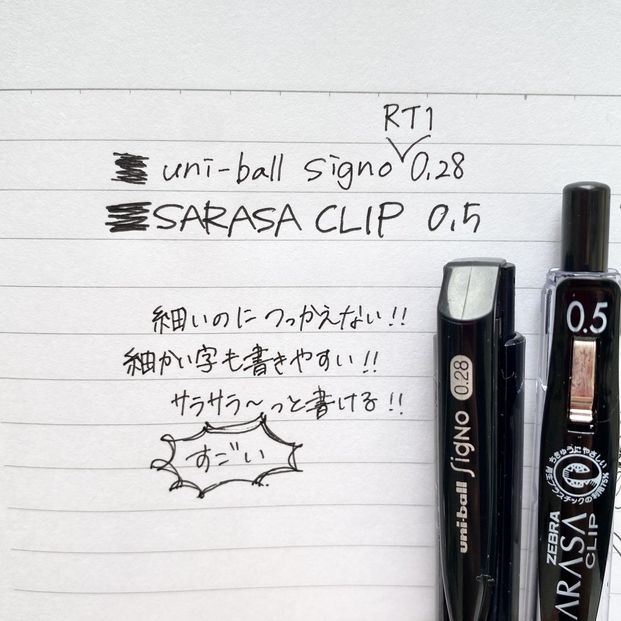 RT1
uni-ball signo 0.28
SARASA CLIP 0.5
細いのにつっかえない!!
細かい字も書きやすい!!
サラサラ〜っと書ける!!
すごい
uni-ball SigNo 0.28
0.5
ちきゅうにやさしい
ZEBRA
ARASA
CLIP